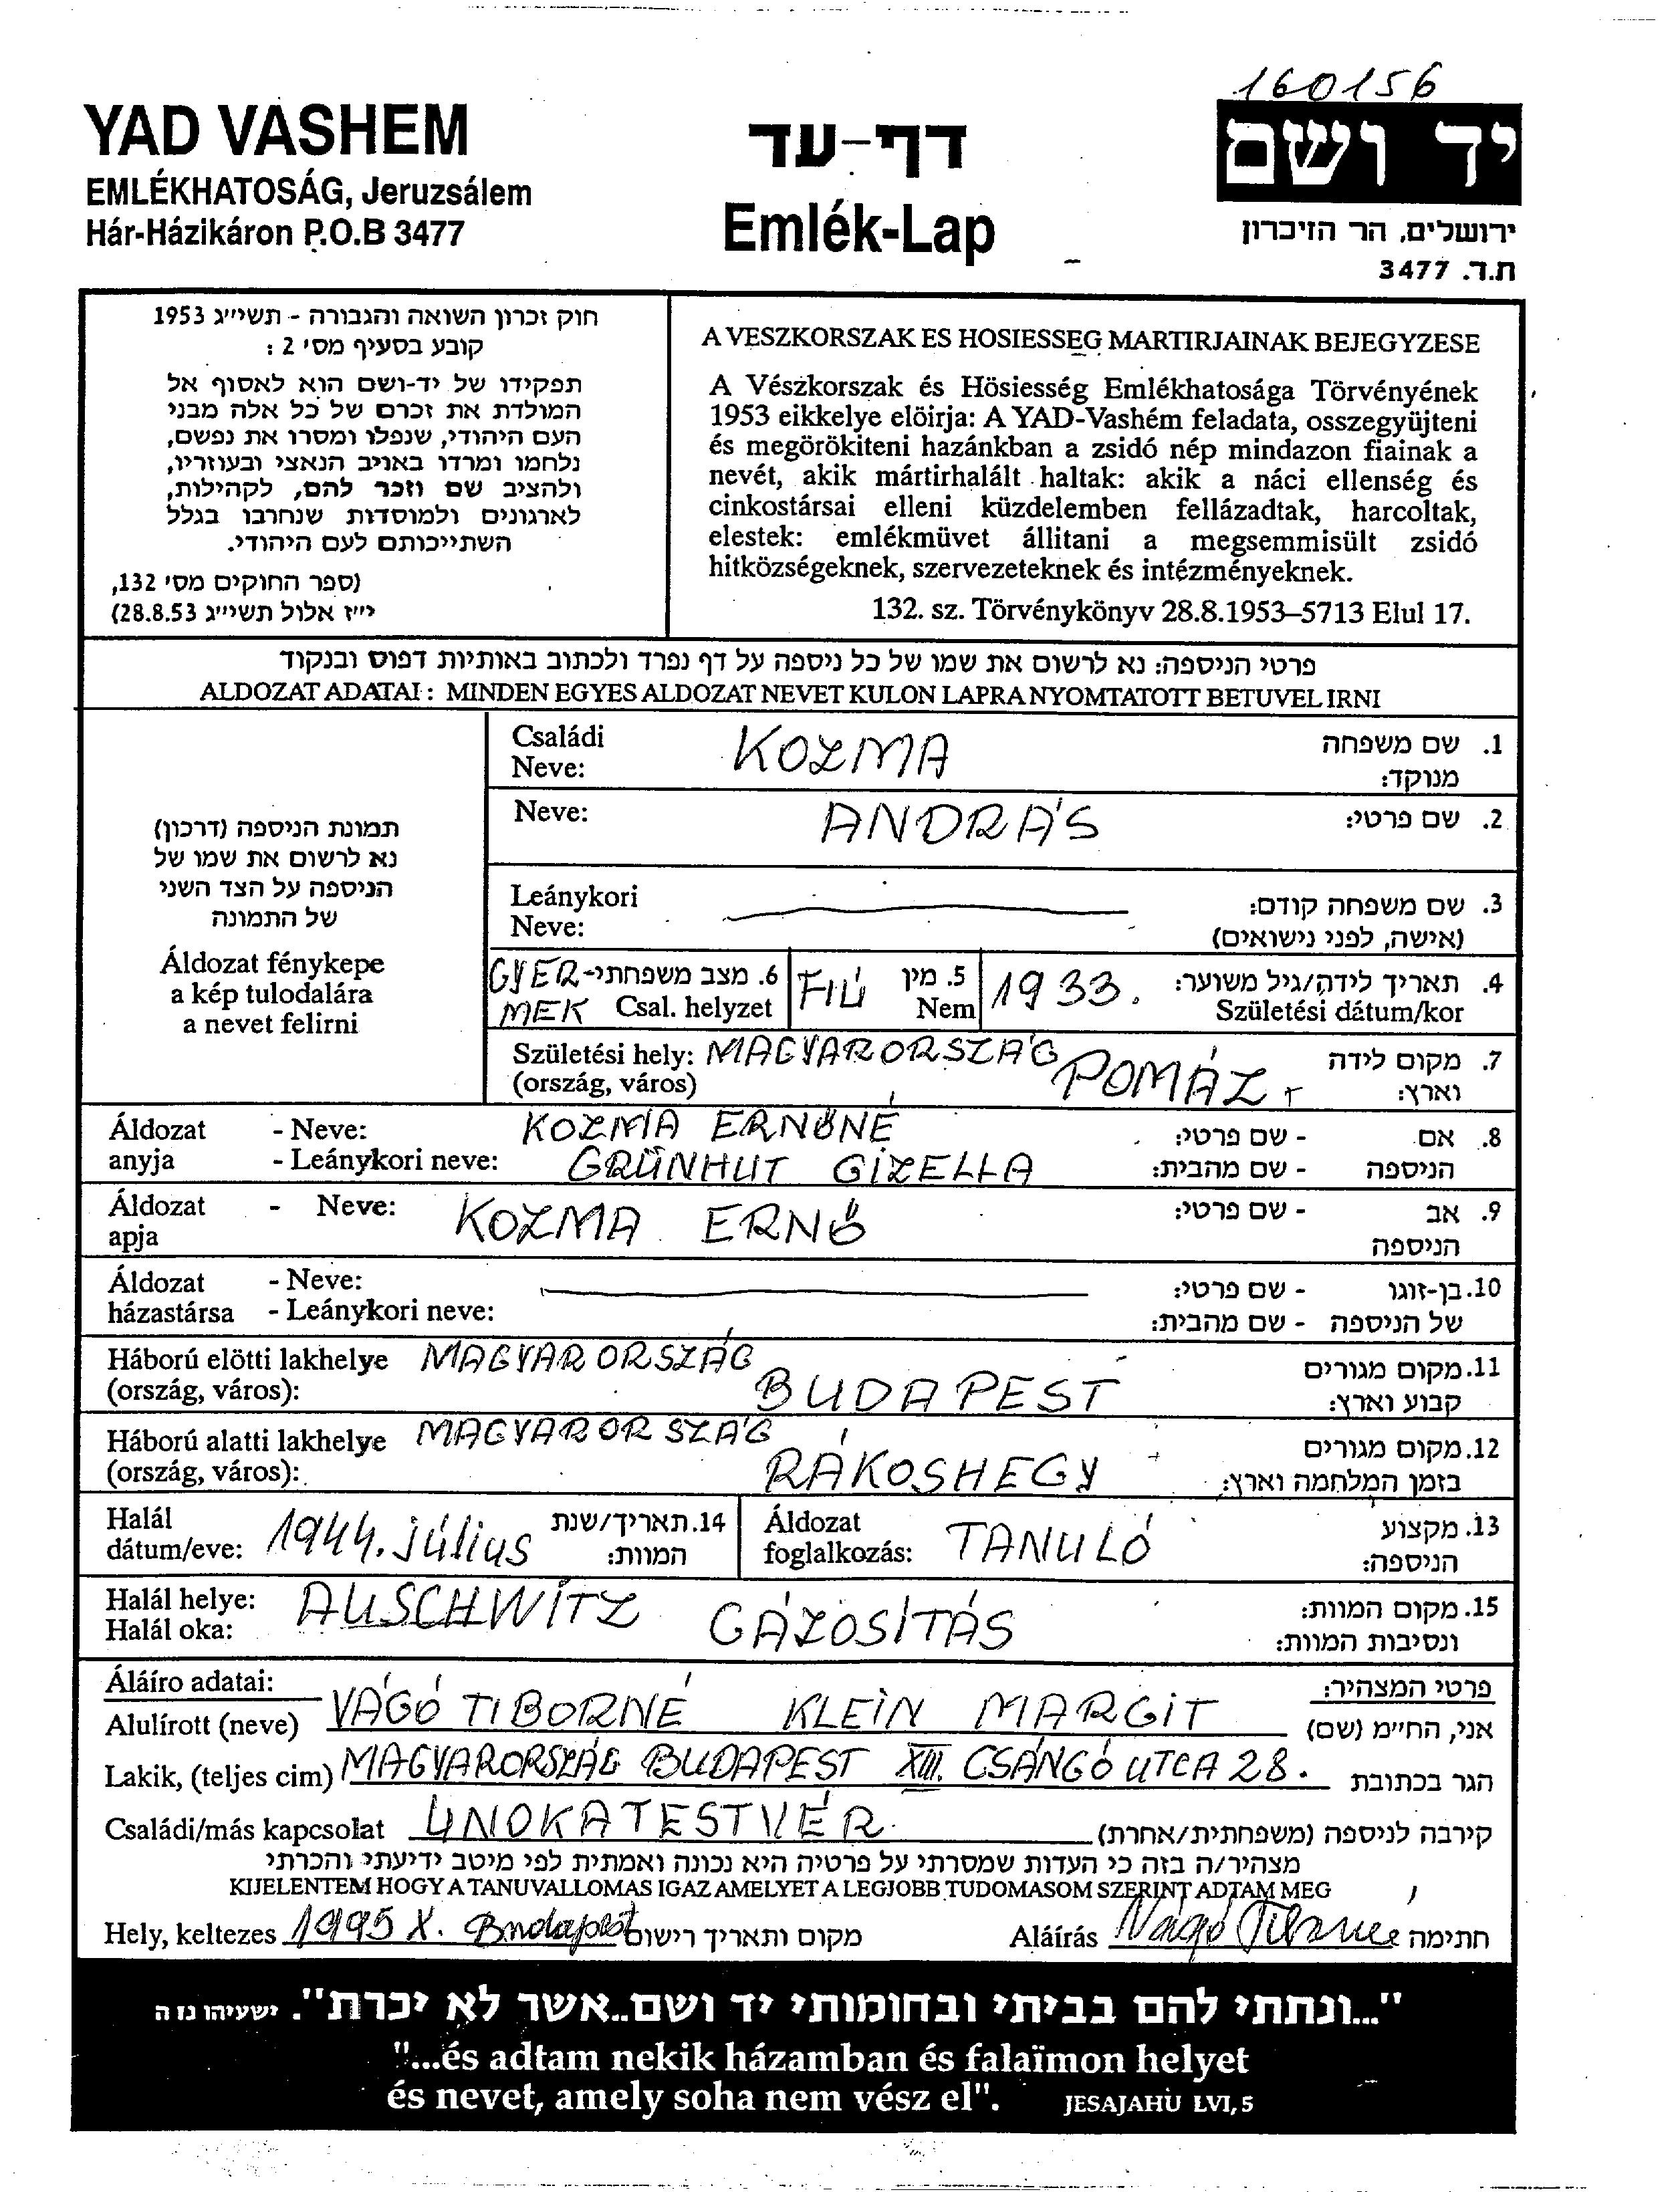 160156
YAD VASHEM
EMLÉKHATOSÁG, Jeruzsálem
Hár-Házikáron P.O.B 3477
דף-עד
Emlék-Lap
יד ושם
ירושלים, הר הזיכרון
ת.ד. 3477
חוק זכרון השואה והגבורה - תשי״ג 1953
קובע בסעיף מס׳ 2 :
תפקידו של יד-ושם הוא לאסוף אל
המולדת את זכרם של כל אלה מבני
העם היהודי, שנפלו ומסרו את נפשם,
נלחמו ומרדו באויב הנאצי ובעוזריו,
ולהציב שם וזכר להם, לקהילות,
לארגונים ולמוסדות שנחרבו בגלל
השתייכותם לעם היהודי.
(ספר החוקים מס׳ 132,
י״ז אלול תשי״ג 28.8.53)
A VESZKORSZAK ES HOSIESSEG MARTIRJAINAK BEJEGYZESE
A Vészkorszak és Hösiesség Emlékhatosága Törvényének
1953 eikkelye elöirja: A YAD-Vashém feladata, osszegyüjteni
és megörökiteni hazánkban a zsidó nép mindazon fiainak a
nevét, akik mártirhalált haltak: akik a náci ellenség és
cinkostársai elleni küzdelemben fellázadtak, harcoltak,
elestek: emlékmüvet állitani a megsemmisült zsidó
hitközségeknek, szervezeteknek és intézményeknek.
132. sz. Törvénykönyv 28.8.1953–5713 Elul 17.
פרטי הניספה: נא לרשום את שמו של כל ניספה על דף נפרד ולכתוב באותיות דפוס ובנקוד
ALDOZAT ADATAI : MINDEN EGYES ALDOZAT NEVET KULON LAPRA NYOMTATOTT BETUVEL IRNI
תמונת הניספה (דרכון)
נא לרשום את שמו של
הניספה על הצד השני
של התמונה
Áldozat fénykepe
a kép tulodalára
a nevet felirni
Családi KOZMA 1. שם משפחה
Neve: מנוקד:
Neve: ANDRÁS 2. שם פרטי:
Leánykori 3. שם משפחה קודם:
Neve: (אישה, לפני נישואים)
GYER- 6. מצב משפחתי FIÚ 5. מין 1933. 4. תאריך לידה/גיל משוער:
MEK Csal. helyzet Nem Születési dátum/kor
Születési hely: MAGYARORSZÁG POMÁZ 7. מקום לידה
(ország, város) וארץ:
Áldozat - Neve: KOZMA ERNŐNÉ - שם פרטי: 8. אם
anyja - Leánykori neve: GRÜNHUT GIZELLA - שם מהבית: הניספה
Áldozat - Neve: KOZMA ERNŐ - שם פרטי: 9. אב
apja הניספה
Áldozat - Neve: - שם פרטי: 10. בן-זוגו
házastársa - Leánykori neve: - שם מהבית: של הניספה
Háború elötti lakhelye MAGYARORSZÁG 11. מקום מגורים
(ország, város): BUDAPEST קבוע וארץ:
Háború alatti lakhelye MAGYARORSZÁG 12. מקום מגורים
(ország, város): RÁKOSHEGY בזמן המלחמה וארץ:
Halál 1944. július 14. תאריך/שנת Áldozat TANULÓ 13. מקצוע
dátum/eve: המוות: foglalkozás: הניספה:
Halál helye: AUSCHWITZ GÁZOSÍTÁS 15. מקום המוות:
Halál oka: ונסיבות המוות:
Áláíro adatai: פרטי המצהיר:
Alulírott (neve) VÁGÓ TIBORNÉ KLEIN MARGIT אני, החי״מ (שם)
Lakik, (teljes cim) MAGYARORSZÁG BUDAPEST XIII. CSÁNGÓ UTCA 28. הגר בכתובת
Családi/más kapcsolat UNOKATESTVÉR. קירבה לניספה (משפחתית/אחרת)
מצהיר/ה בזה כי העדות שמסרתי על פרטיה היא נכונה ואמתית לפי מיטב ידיעתי והכרתי
KIJELENTEM HOGY A TANUVALLOMAS IGAZ AMELYET A LEGJOBB TUDOMASOM SZERINT ADTAM MEG
Hely, keltezes 1995 X. Budapest מקום ותאריך רישום Aláírás Vágó Tiborné חתימה
"...ונתתי להם בביתי ובחומותי יד ושם..אשר לא יכרת". ישעיהו נו ה
"...és adtam nekik házamban és falaïmon helyet
és nevet, amely soha nem vész el". JESAJAHÙ LVI, 5